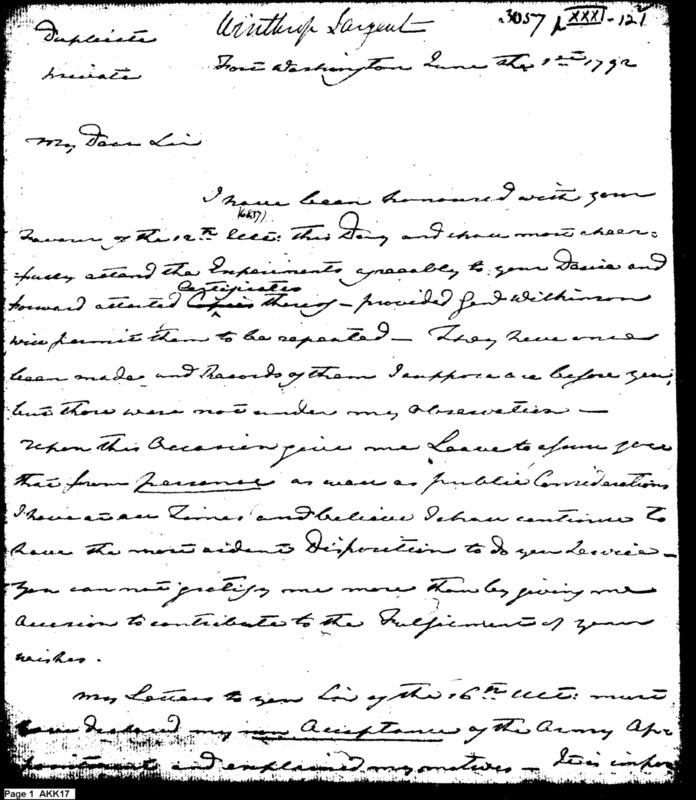 Duplicate Winthrop Sargent 3057 XXXI-121
private Fort Washington June the 1st 1792
My Dear Sir
I have been honoured with your
favour of the 12th Ulto: this Day and shall most cheer=
=fully attend the Experiments agreeably to your Desire and
Certificates
forward attested Copies thereof – provided Genl Wilkinson
will permit them to be repeated – They have once
been made and Records of them I suppose are before you,
but those were not under my observation –
Upon this Occasion give me Leave to assure you
that from personal as well as public Considerations
I have at all Times and believe I shall continue to
have the most ardent Disposition to do you Service –
You can not gratify me more than by giving me
Occasion to contribute to the Fulfilment of your
wishes.
My Letters to you Sir of the 16th Ult: must
have declared my non Acceptance of the Army Ap=
pointment and explained my motives – It is impos
Page 1 AKK17